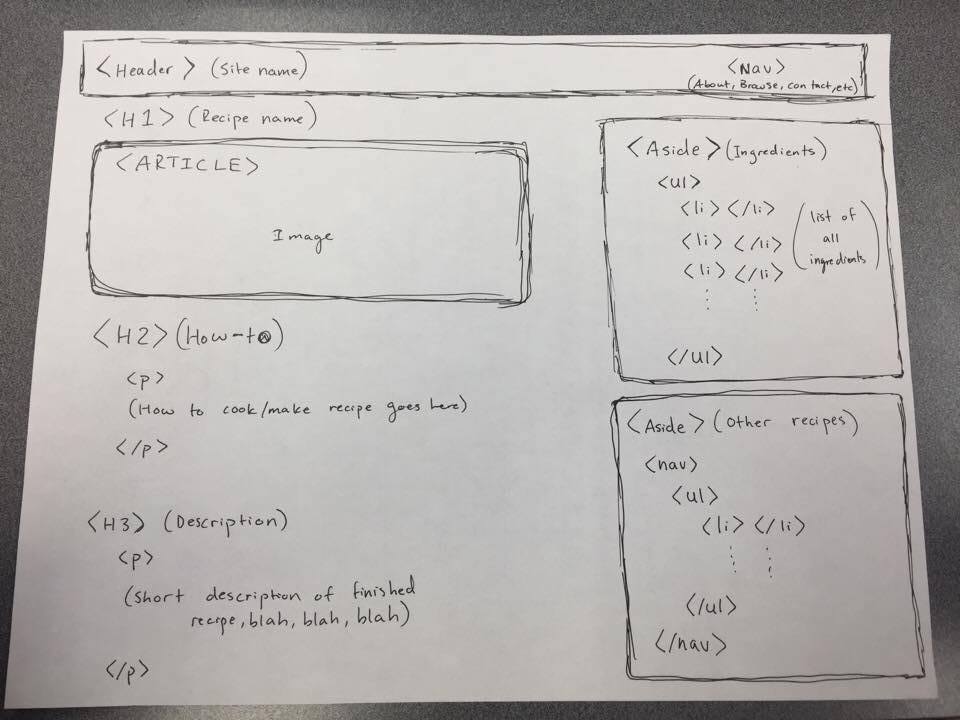 <Header> (Site name)
<Nav>
(About, Browse, contact, etc)
<H1> (Recipe name)
<ARTICLE>
Image
<H2> (How-to)
<p>
(How to cook/make recipe goes here)
</p>
<H3> (Description)
<p>
(short description of finished
recipe, blah, blah, blah)
</p>
<Aside> (Ingredients)
<ul>
<li> </li>
<li> </li>
<li> </li>
(list of
all
ingredients)
</ul>
<Aside> (Other recipes)
<nav>
<ul>
<li> </li>
</ul>
</nav>